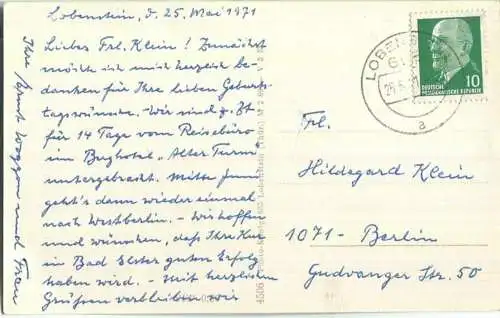 Lobenstein, d. 25. Mai 1971
Liebes Frl. Klein! Zunächst
möchte ich mich herzlich be-
danken für Ihre lieben Geburts-
tagswünsche. Wir sind z. Zt.
für 14 Tage vom Reisebüro
im Berghotel "Alter Turm"
untergebracht. Mitte Juni
geht's dann wieder einmal
nach Westberlin. - Wir hoffen
und wünschen, daß Ihre Kur
in Bad Elster guten Erfolg
haben wird. - Mit herzlichen
Grüßen verbleiben wir
Ihre und Frau
Frl.
Hildegard Klein
1071 - Berlin
Gudvanger Str. 50
LOBEN
a
10
DEUTSCHE
DEMOKRATISCHE REPUBLIK
4506